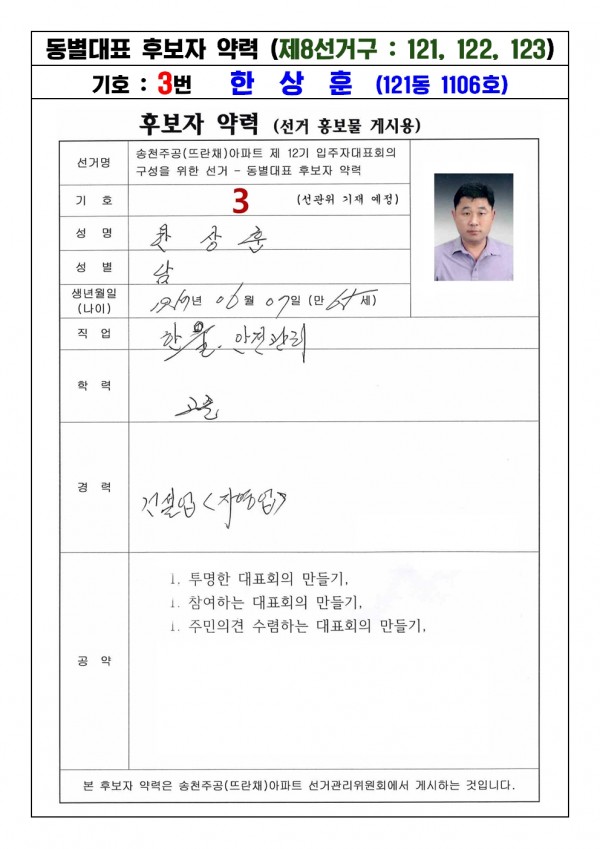 동별대표 후보자 약력 (제8선거구 : 121, 122, 123)
기호 : 3번 한 상 훈 (121동 1106호)
후보자 약력 (선거 홍보물 게시용)
선거명 송천주공(뜨란채)아파트 제 12기 입주자대표회의
구성을 위한 선거 - 동별대표 후보자 약력
기 호 3 (선관위 기재 예정)
성 명 한 상 훈
성 별 남
생년월일
(나이) 년 06월 07일 (만 세)
직 업 안전관리
학 력 고졸
경 력 건설업 <자영업>
공 약
1. 투명한 대표회의 만들기,
1. 참여하는 대표회의 만들기,
1. 주민의견 수렴하는 대표회의 만들기,
본 후보자 약력은 송천주공(뜨란채)아파트 선거관리위원회에서 게시하는 것입니다.